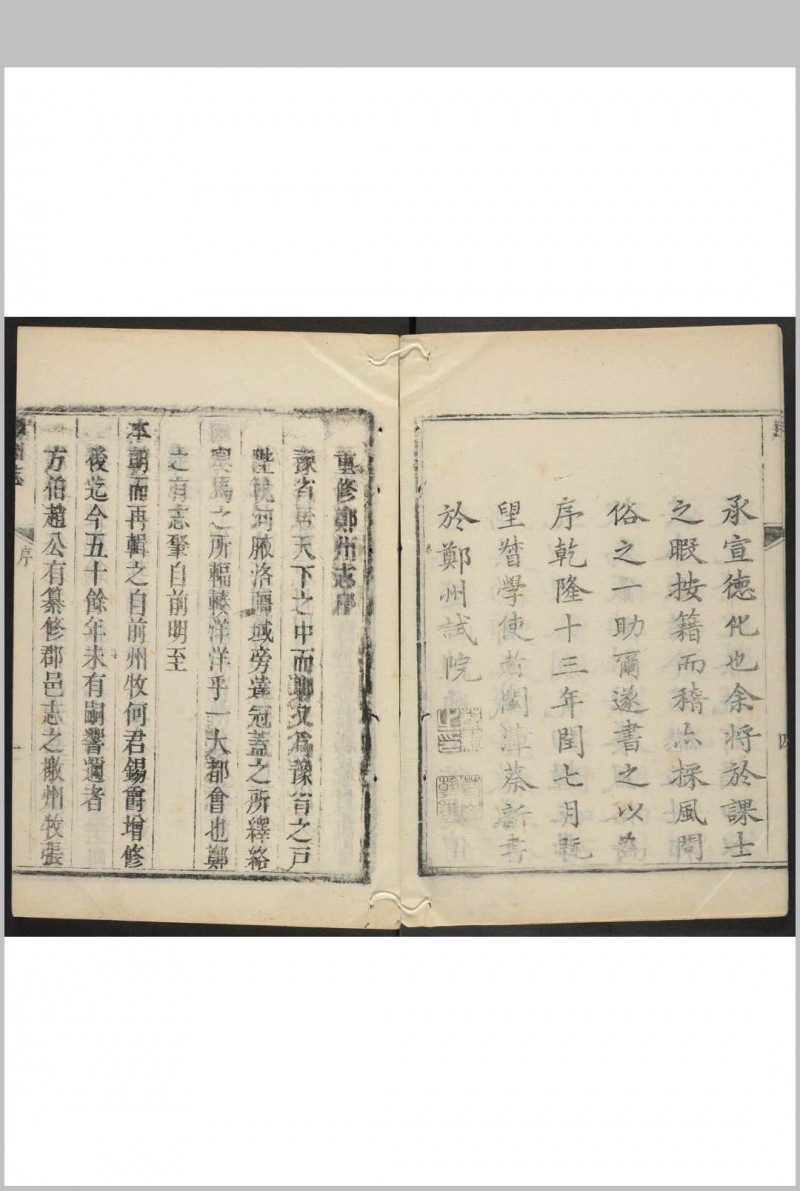 承宣德化也余將於課士
之暇按籍而稽亦採風問
俗之一助爾遂書之以為
序乾隆十三年閏七月既
望督學使者閩漳蔡新書
於鄭州試院
四
重修鄭州志序
豫省居天下之中而鄭又為豫省之戶
陛統河腋洛疇域旁達冠蓋之所繹絡
輿馬之所輻輳洋洋乎一大都會也鄭
之有志肇自前明至
本朝而再輯之自前州牧何君錫爵增修
後迄今五十餘年未有嗣響邇者
方伯趙公有纂修郡邑志之檄州牧張
州志
序
一